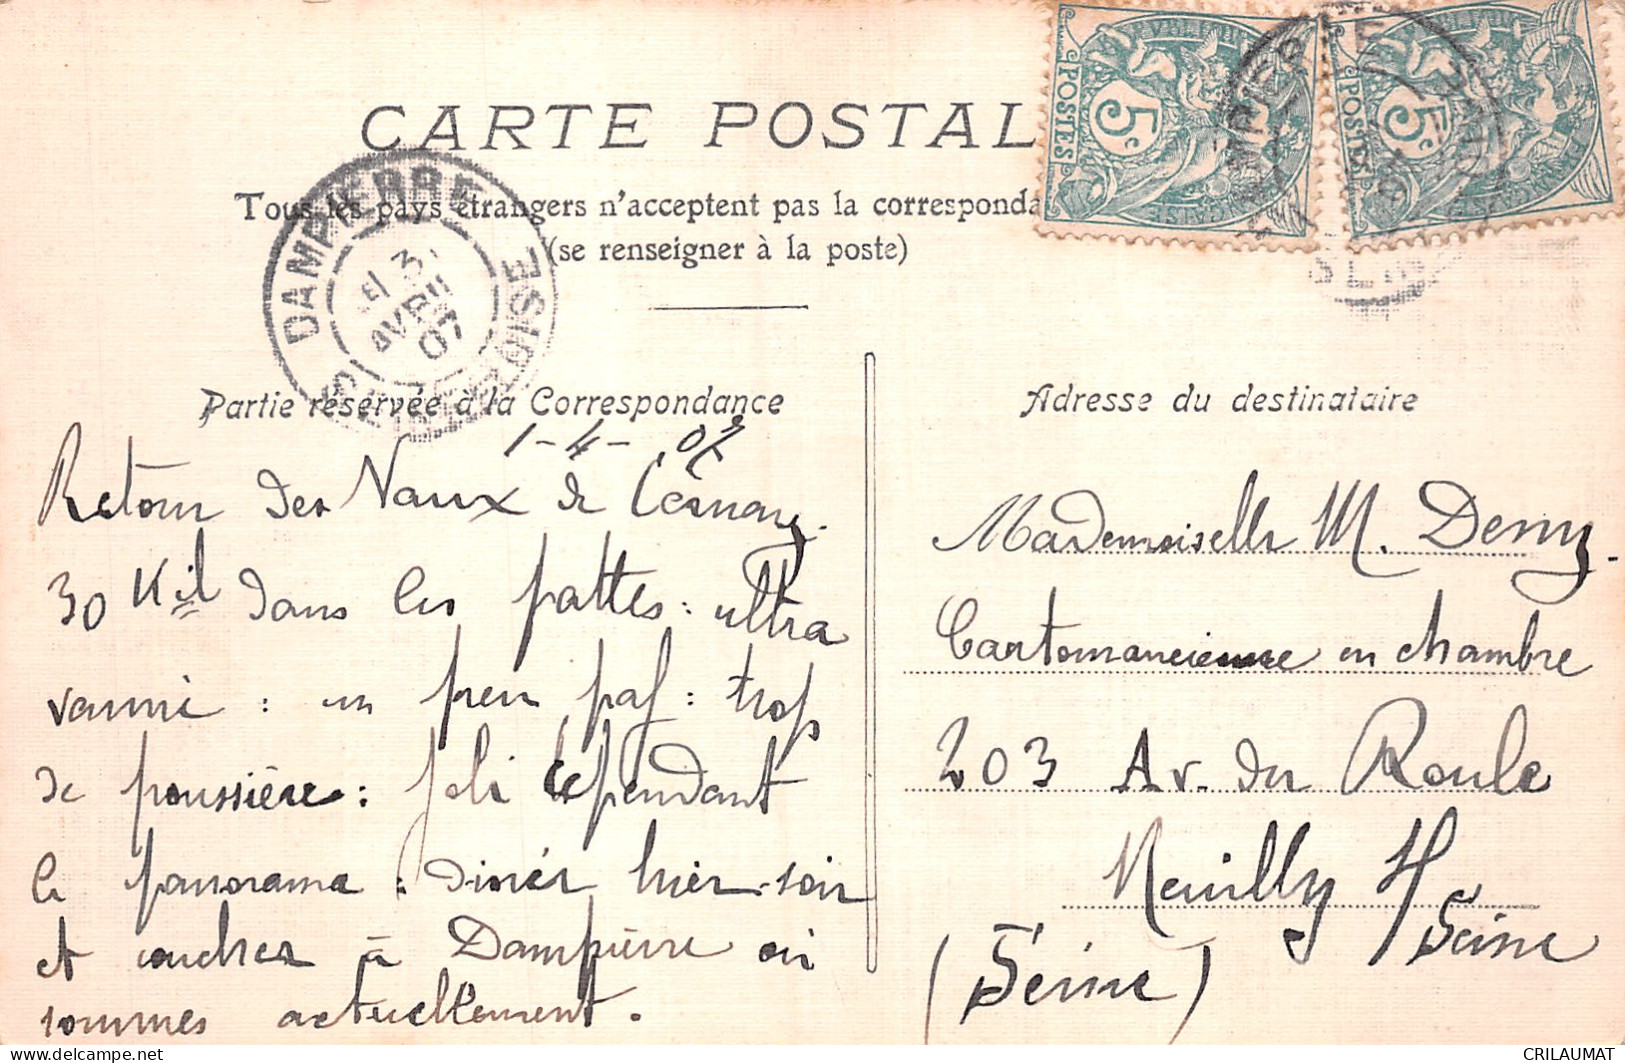 CARTE POSTAL
Tous les pays étrangers n'acceptent pas la corresponda
(se renseigner à la poste)
POSTES
5c
POSTES
5c
DAMPIERRE
SEINE-ET-OISE
3
AVRIL
07
Partie réservée à la Correspondance
Adresse du destinataire
1-4-07
Retour des Vaux de Cernay.
30 Kil dans les pattes : ultra
vanné : un peu paf : trop
de poussière : joli cependant
le panorama : dinés hier soir
et couchés à Dampierre où
sommes actuellement.
Mademoiselle M. Demy.
Cartomancienne en chambre
203 Av. du Roule
Neuilly s/ Seine
(Seine)
CRILAUMAT